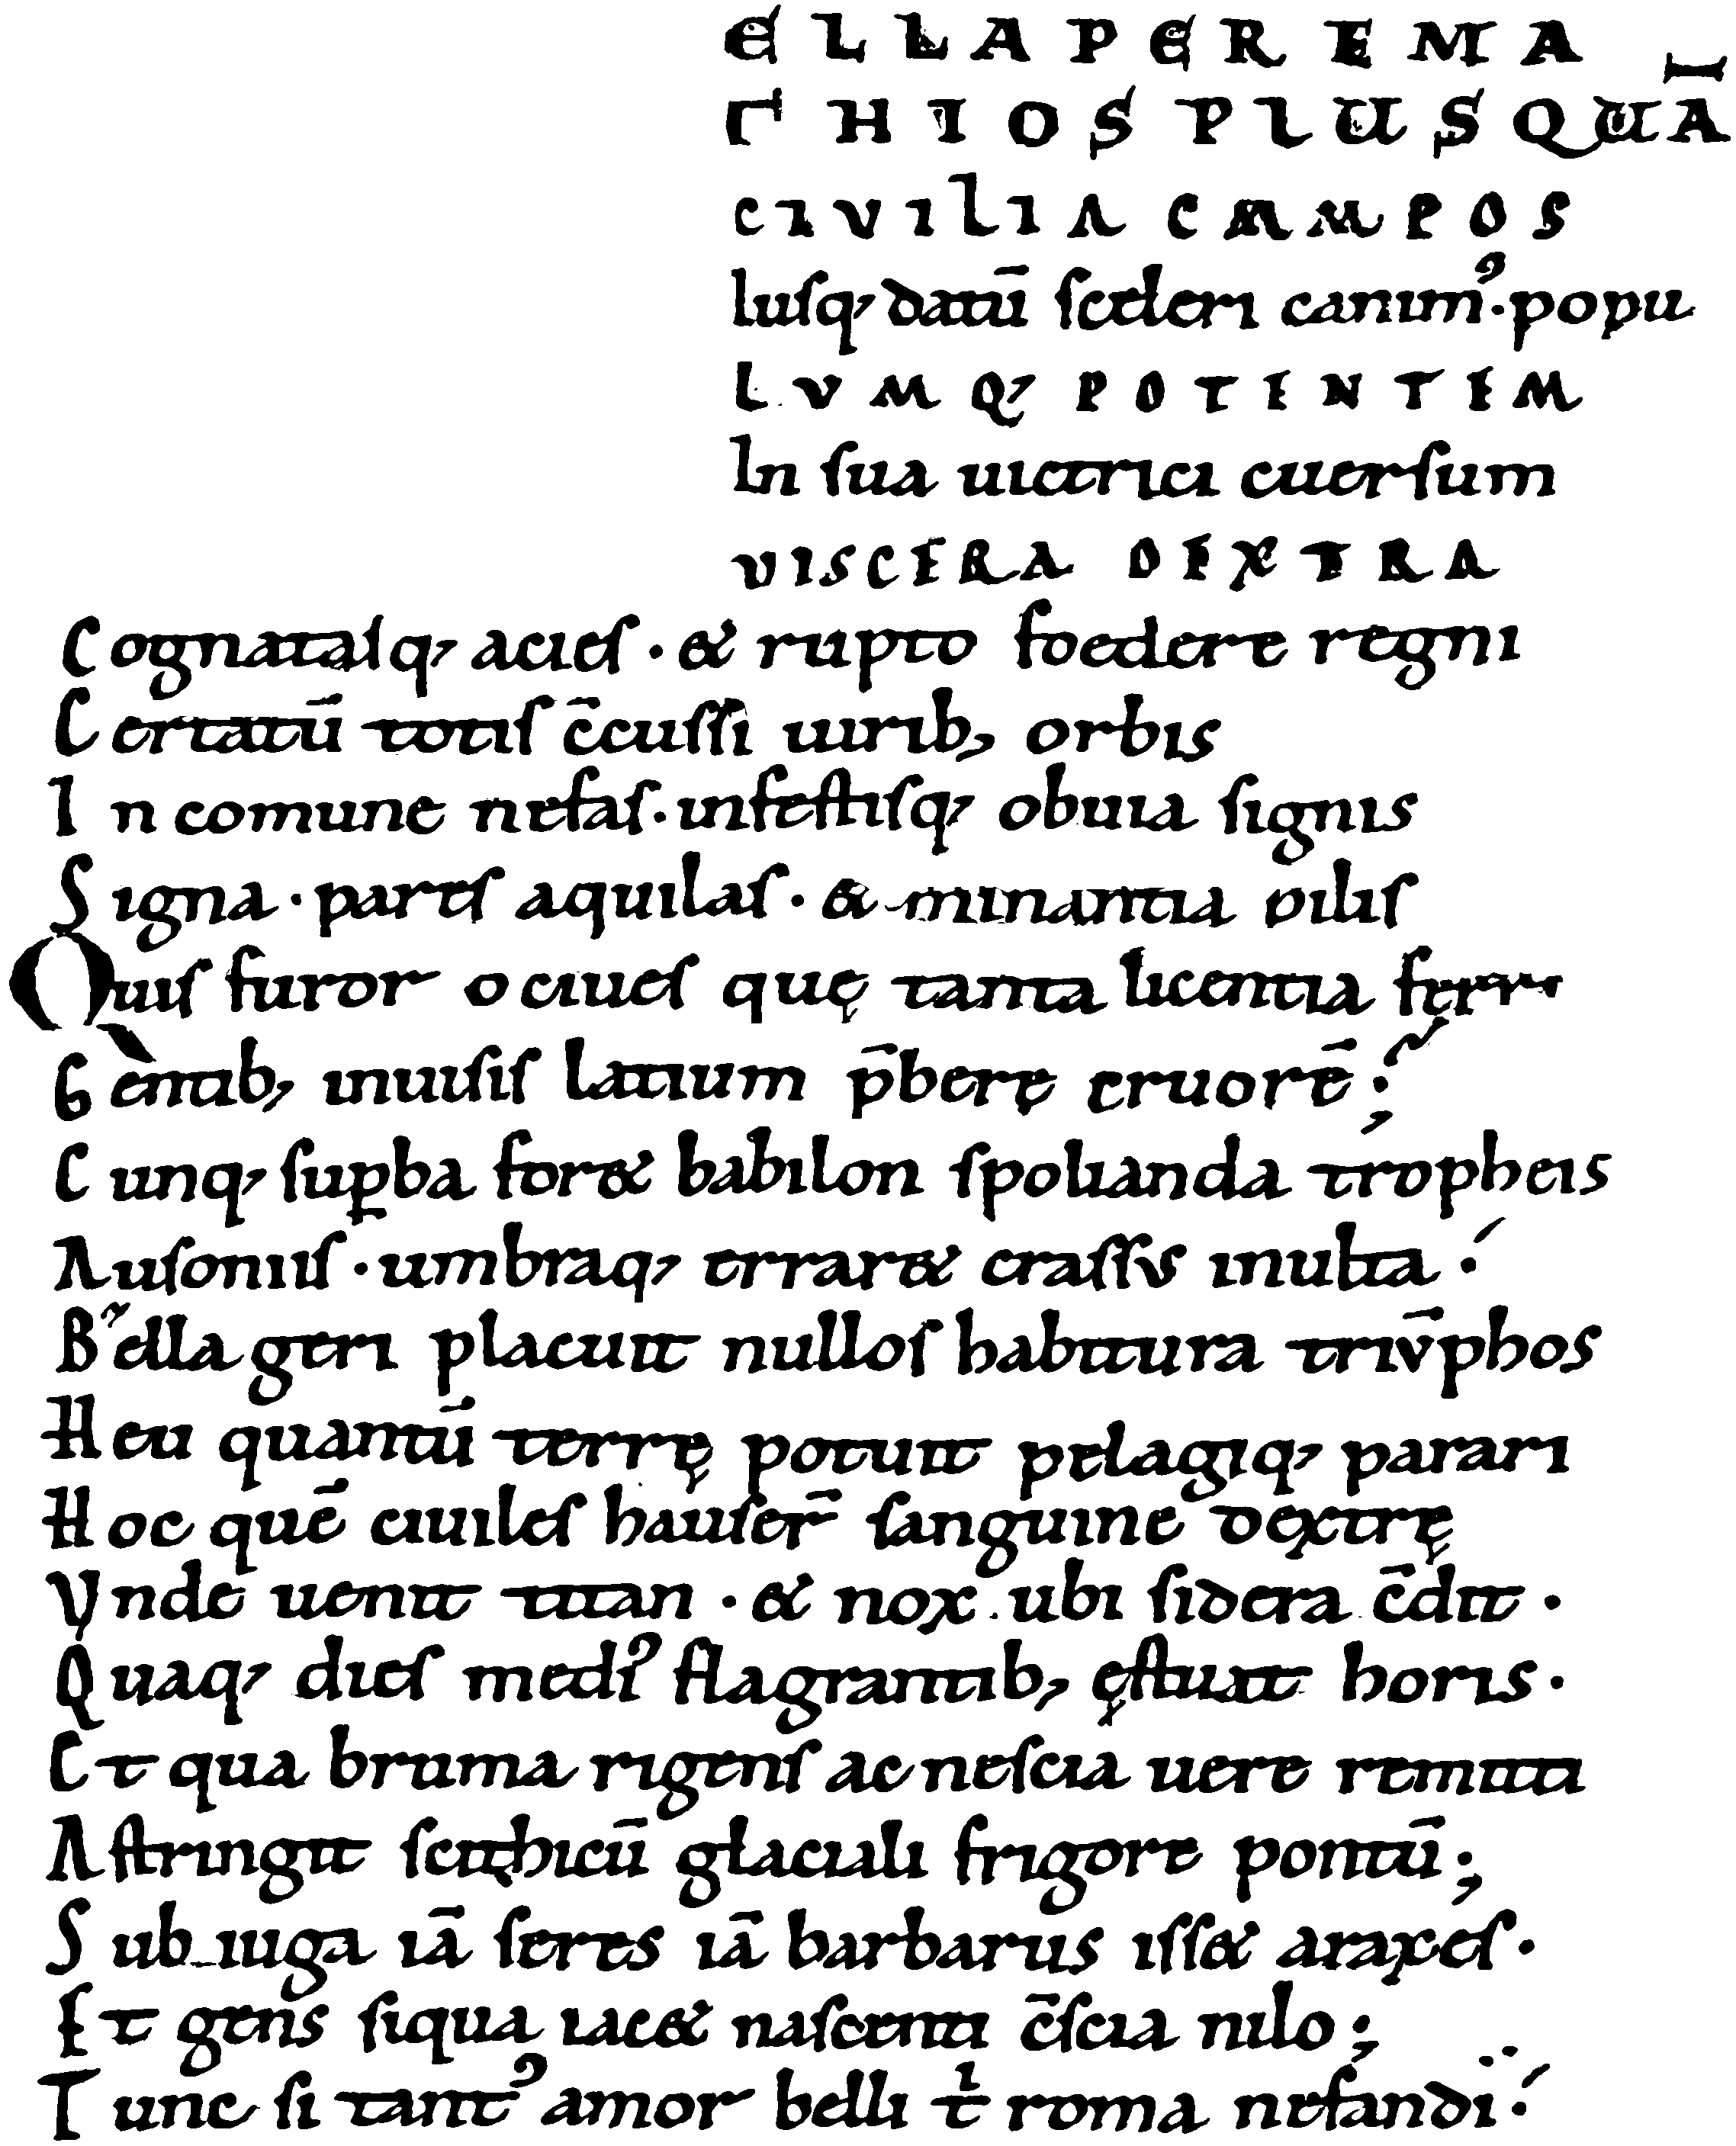 ELLA PER EMA
THIOS PLUS QUĀ
CIVILIA CAMPOS
luſq, datū ſceleri canim᾿· popu
LVMQ, POTENTEM
In ſua uictrici euerſum
VISCERA DEXTRA
Cognataſq, acieſ · & rupto foedere regni
Certatū totiſ c̄cuſſi uirib; orbis
In comune nefaſ · infeſtiſq, obuia ſignis
Signa · pareſ aquilaſ · & minantia piliſ
Quiſ furor o ciueſ quę tanta licentia ferri
Gentib; inuiſiſ latium p̄bere cruorē;
Cunq, ſuꝑba for& babilon ſpolianda tropheis
Auſoniiſ · umbraq, errar& craſſvs inulta ·
Bella geri placuit nulloſ habitura triv̄phos
Heu quantū terrę potuit pelagiq, parari
Hoc quē ciuileſ hauſer̄ ſanguine dextrę
Vnde uenit titan · & nox ubi ſidera c̄dit ·
Quaq, dieſ medi᾿ flagrantib; ęſtuat horis ·
Et qua bruma rigenſ ac neſcia uere remitti
Aſtringit ſcithicū glaciali frigore pontū;
Sub iuga iā ſeres iā barbarus iſſ& araxeſ ·
Et gens ſiqua iac& naſcenti c̄ſcia nilo;
Tunc ſi tant᾿ amor belli t roma nefandi ·